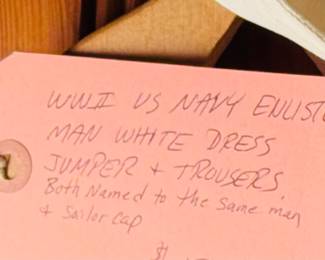 WWII US NAVY ENLIST
MAN WHITE DRESS
JUMPER + TROUSERS.
Both Named to the same man
& Sailor cap
$